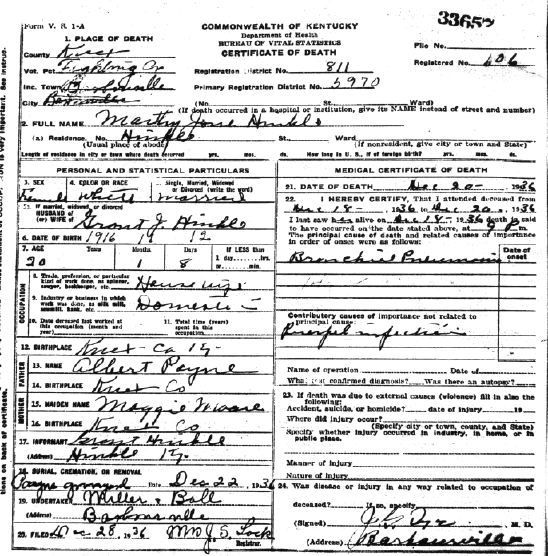 Form V. S. 1-A
COMMONWEALTH OF KENTUCKY
33652
Department of Health
BUREAU OF VITAL STATISTICS
CERTIFICATE OF DEATH
1. PLACE OF DEATH
County Knox
File No.
Vot. Pct. Fighting Cr
Registration District No. 811
Registered No. 606
Inc. Town
Primary Registration District No. 5970
City Barbourville
(No. St. Ward)
(If death occurred in a hospital or institution, give its NAME instead of street and number)
2. FULL NAME Martha Jane Hinkle
(a) Residence. No. Hinkle St., Ward
(Usual place of abode) (If nonresident, give city or town and State)
Length of residence in city or town where death occurred yrs. mos. ds. How long in U. S., if of foreign birth? yrs. mos. ds.
PERSONAL AND STATISTICAL PARTICULARS
3. SEX
4. COLOR OR RACE white
5. Single, Married, Widowed or Divorced (write the word) married
5a. If married, widowed, or divorced
HUSBAND of
(or) WIFE of Grant J. Hinkle
6. DATE OF BIRTH 1916 11 12
7. AGE Years Months Days If LESS than
20 1 8 1 day, hrs. or min.
OCCUPATION
8. Trade, profession, or particular kind of work done, as spinner, sawyer, bookkeeper, etc. House wife
9. Industry or business in which work was done, as silk mill, sawmill, bank, etc. Domestic
10. Date deceased last worked at this occupation (month and year)
11. Total time (years) spent in this occupation
12. BIRTHPLACE Knox Co Ky
FATHER
13. NAME Albert Payne
14. BIRTHPLACE Knox Co
MOTHER
15. MAIDEN NAME Maggie Moore
16. BIRTHPLACE Knox Co
17. INFORMANT Grant Hinkle
(Address) Hinkle Ky.
18. BURIAL, CREMATION, OR REMOVAL
Payne graveyard Date Dec 22, 1936
19. UNDERTAKER Miller & Ball
(Address) Barbourville
20. FILED Dec 28, 1936 Mrs J. S. Lock
Registrar.
MEDICAL CERTIFICATE OF DEATH
21. DATE OF DEATH Dec 20 - 1936
22. I HEREBY CERTIFY, That I attended deceased from
Dec 18 -, 1936 to Dec 20, 1936
I last saw her alive on Dec 18, 1936 death is said
to have occurred on the date stated above, at 9 P m.
The principal cause of death and related causes of importance
in order of onset were as follows:
Date of onset
Bronchial Pneumonia
Contributory causes of importance not related to
principal cause:
Puerperal infection
Name of operation Date of
What test confirmed diagnosis? Was there an autopsy?
23. If death was due to external causes (violence) fill in also the
following:
Accident, suicide, or homicide? date of injury 19
Where did injury occur?
(Specify city or town, county, and State)
Specify whether injury occurred in industry, in home, or in
public place.
Manner of injury
Nature of injury
24. Was disease or injury in any way related to occupation of
deceased? If so, specify
(Signed) M. D.
(Address) Barbourville